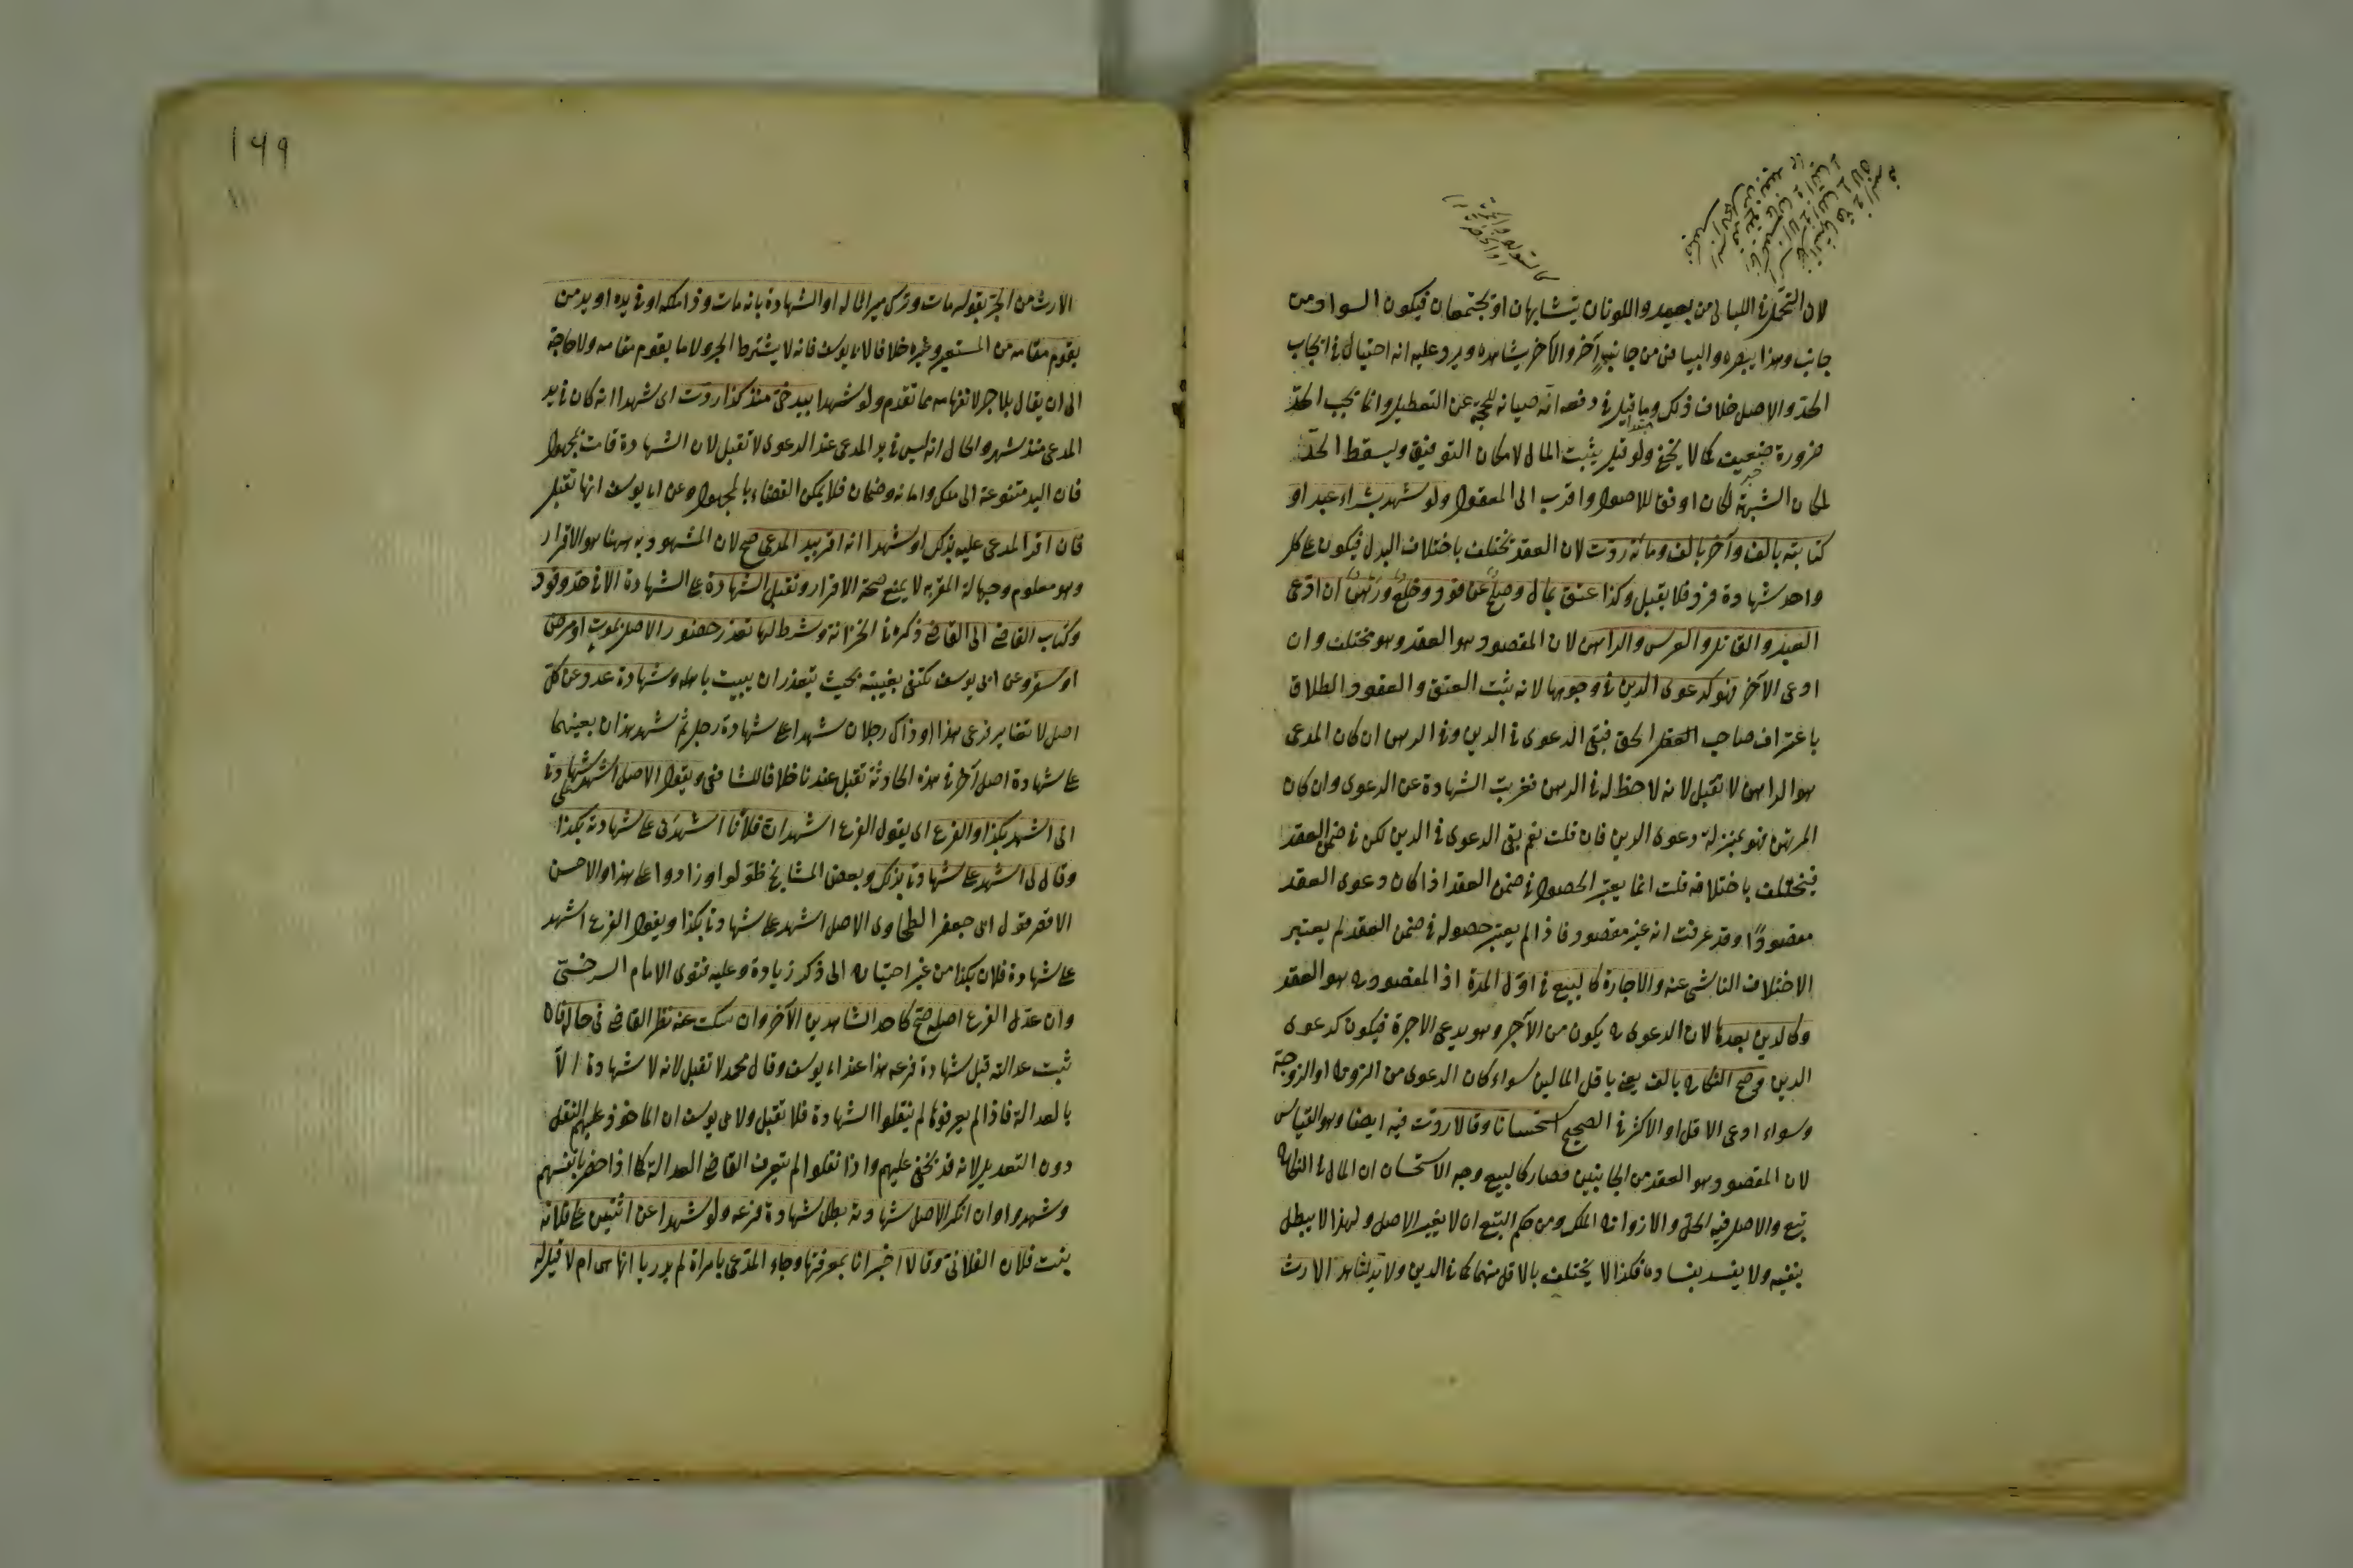 لان التحمل في الليالى من بعيد واللونان يتشابهان او يجتمعان فيكون السواد من
جانب وهذا يبصره والبياض من جانب آخر والآخر يشاهده ويرد عليه انه احتيال في ايجاب
الحد والاصل خلاف ذلك وما قيل في دفعه انه صيانة للحجة عن التعطيل وانما يجب الحد
ضرورة ضعيف كما لا يخفى ولو قيل يثبت المال لامكان التوفيق ويسقط الحد
لمكان الشبهة لكان اوفق للاصول واقرب الى المعقول ولو شهد بشراء عبد او
كتابته بالف وآخر بالف ومائة ردت لان العقد يختلف باختلاف البدل فيكون على كل
واحد شهادة فرد فلا يقبل وكذا عتق بمال وصلح عن قود وخلع ورهن ان ادعى
العبد والقاتل والعرس والراهن لان المقصود هو العقد وهو مختلف وان
ادعى الآخر فهو كدعوى الدين في وجوهها لانه يثبت العتق والعقود والطلاق
باعتراف صاحب الحق فبقى الدعوى في الدين وفي الرهن ان كان المدعى
هو الراهن لا تقبل لانه لا حظ له في الرهن فعريت الشهادة عن الدعوى وان كان
المرتهن فهو بمنزلة دعوى الدين فان قلت نعم بقى الدعوى في الدين لكن في ضمن العقد
فيختلف باختلافه قلت انما يعتبر الحصول في ضمن العقد اذا كان دعوى العقد
مقصودًا وقد عرفت انه غير مقصود فاذا لم يعتبر حصوله في ضمن العقد لم يعتبر
الاختلاف الناشى عنه والاجارة كالبيع في اول المدة اذ المقصود به هو العقد
وكالدين بعدها لان الدعوى به يكون من الآجر وهو يدعى الاجرة فيكون كدعوى
الدين وصح النكاح بالف يعنى باقل المالين سواء كان الدعوى من الزوج او الزوجة
وسواء ادعى الاقل او الاكثر في الصحيح استحسانا وقالا ردت فيه ايضا وهو القياس
لان المقصود هو العقد من الجانبين فصار كالبيع وجه الاستحسان ان المال في النكاح
تبع والاصل فيه الحل والازدواج الملك ومن حكم التبع ان لا يغير الاصل ولهذا لا يبطل
بنفيه ولا يفسد بفساده فكذا لا يختلف بالاقل منهما كما في الدين ولا بد لشاهد الارث
١٤٩
الارث من الجر بقوله مات وترك ميراثا له او الشهادة بانه مات وذا ملكه او في يده او يد من
يقوم مقامه من المستعير وغيره خلافا لابى يوسف فانه لا يشترط الجر ولا ما يقوم مقامه ولا حاجة
الى ان يقال بلا جر لانفهامه مما تقدم ولو شهدا بيد حى منذ كذا ردت اى شهدا انه كان في يد
المدعى منذ شهر والحال انه ليس في يد المدعى عند الدعوى لا تقبل لان الشهادة قامت بمجهول
فان اليد متنوعة الى ملك وامانة وضمان فلا يمكن القضاء بالمجهول وعن ابى يوسف انها تقبل
فان اقر المدعى عليه بذلك او شهدا انه اقر بيد المدعى صح لان المشهود به ههنا هو الاقرار
وهو معلوم وجهالة المقر به لا يمنع صحة الاقرار وتقبل الشهادة على الشهادة الا في حد وقود
وكتاب القاضى الى القاضى ذكره في الخزانة وشرط لها تعذر حضور الاصل بموت او مرض
او سفر وعن ابى يوسف يكتفى بغيبته بحيث يتعذر ان يبيت باهله وشهادة عدد عن كل
اصل لا تغاير فرعى هذا او ذاك رجلان شهدا على شهادة رجل ثم شهد هذان بعينهما
على شهادة اصل آخر في هذه الحادثة تقبل عندنا خلافا للشافعى ويقول الاصل اشهد على شهادتى
انى اشهد بكذا والفرع اى يقول الفرع اشهد ان فلانا اشهدنى على شهادته بكذا
وقال لى اشهد على شهادتى بذلك وبعض المشايخ طولوا وزادوا على هذا والاحسن
الاقصر قول ابى جعفر الطحاوى الاصل اشهد على شهادتى بكذا ويقول الفرع اشهد
على شهادة فلان بكذا من غير احتياج الى ذكر زيادة وعليه فتوى الامام السرخسى
وان عدل الفرع اصله صح كاحد الشاهدين الآخر وان سكت عنه نظر القاضى في حاله فان
ثبت عدالته قبل شهادة فرعه هذا عند ابى يوسف وقال محمد لا تقبل لانه لا شهادة الا
بالعدالة فاذا لم يعرفوها لم ينقلوا الشهادة فلا تقبل ولابى يوسف ان الماخوذ عليهم النقل
دون التعديل لانه قد يخفى عليهم واذا نقلوا لم يتعرف القاضى العدالة كما اذا حضروا بانفسهم
وشهدوا وان انكر الاصل شهادته بطل شهادة فرعه ولو شهدا عن اثنين على فلانة
بنت فلان الفلانى وقالا اخبرانا بمعرفتها وجاء المدعى بامراة لم يدريا انها هى ام لا قيل له